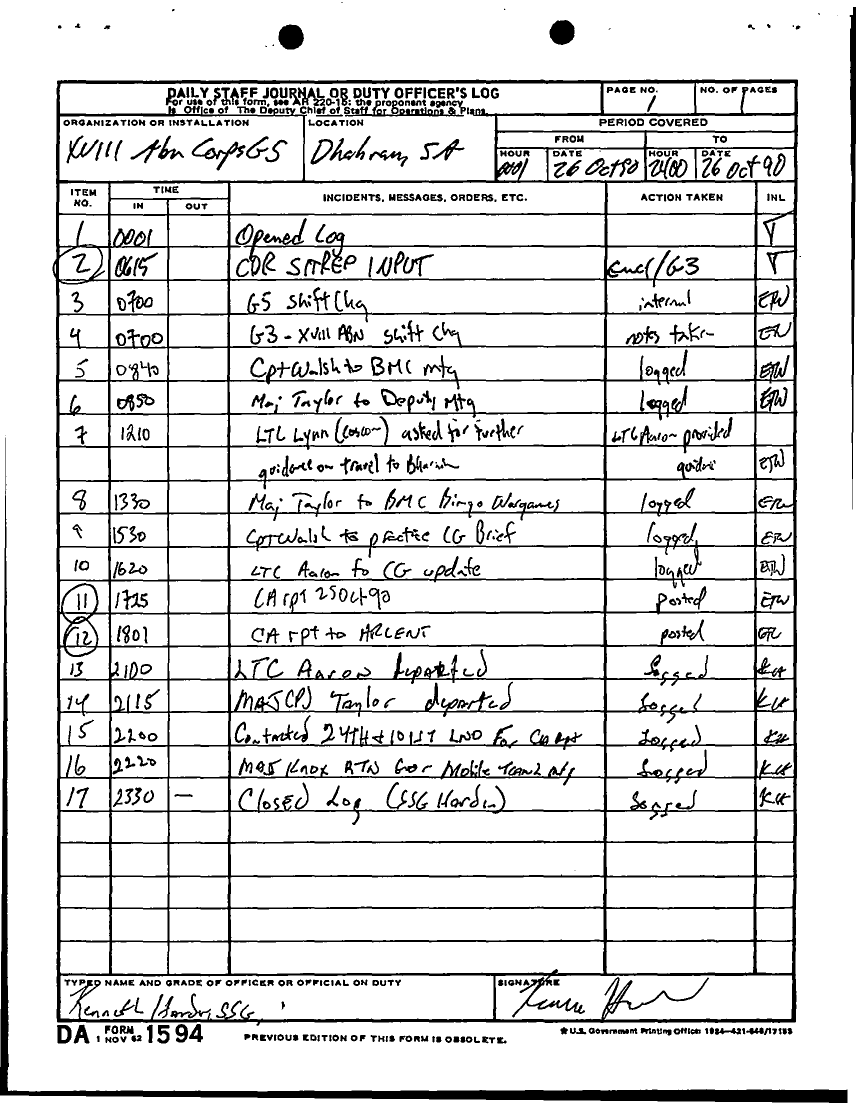 DAILY STAFF JOURNAL OR DUTY OFFICER'S LOG
For use of this form, see AR 220-15; the proponent agency
is Office of The Deputy Chief of Staff for Operations & Plans.
PAGE NO.
1
NO. OF PAGES
1
ORGANIZATION OR INSTALLATION
XVIII Abn Corps G5
LOCATION
Dhahran, SA
PERIOD COVERED
FROM
TO
HOUR
0001
DATE
26 Oct 90
HOUR
2400
DATE
26 Oct 90
ITEM NO.
TIME
IN
OUT
INCIDENTS, MESSAGES, ORDERS, ETC.
ACTION TAKEN
INL
1 0001 Opened Log T
2 0615 CDR SITREP INPUT encl/G3 T
3 0700 G5 Shift Chg internal ETW
4 0700 G3 - XVIII ABN shift chg notes taken
5 0840 Cpt Walsh to BMC mtg logged ETW
6 0850 Maj Taylor to Deputy Mtg logged ETW
7 1210 LTC Lynn (Coscom) asked for further LTC Aaron provided
guidance on travel to ETW
8 1330 Maj Taylor to BMC Bingo Wargames logged ETW
9 1530 Cpt Walsh to practice CG Brief logged ETW
10 1620 LTC Aaron to CG update logged ETW
11 1725 CA rpt 25 Oct 90 Posted ETW
12 1801 CA rpt to ARCENT posted
13 2100 LTC Aaron departed Logged KH
14 2115 MAJ(P) Taylor departed Logged KH
15 2200 Contacted 24TH & 101ST LNO For CA Rpt Logged KH
16 2220 MAJ Knox RTN Mobile mtg Logged KH
17 2330 — Closed Log (SSG Hardin) Logged KH
TYPED NAME AND GRADE OF OFFICER OR OFFICIAL ON DUTY
Kenneth Hardin, SSG,
SIGNATURE
DA FORM 1594
1 NOV 62
PREVIOUS EDITION OF THIS FORM IS OBSOLETE.
★ U.S. Government Printing Office: 1984-421-646/17153